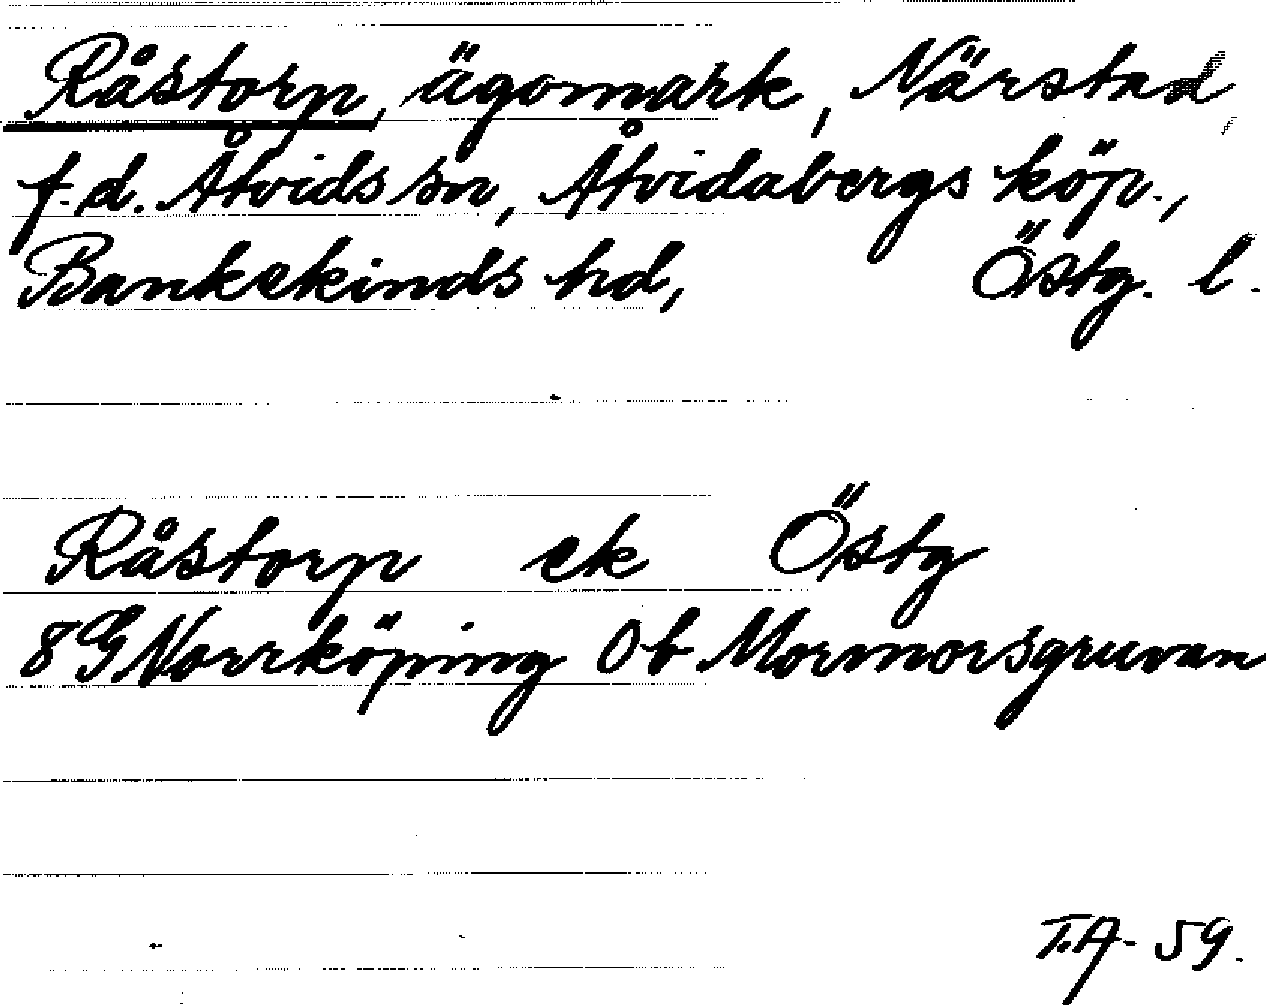 Råstorp, ägomark, Närstad,
f.d. Åtvids sn, Åtvidabergs köp.,
Bankekinds hd, Östg. l.
Råstorp ek Östg
8G Norrköping 0b Mormorsgruvan
T.A- 59.